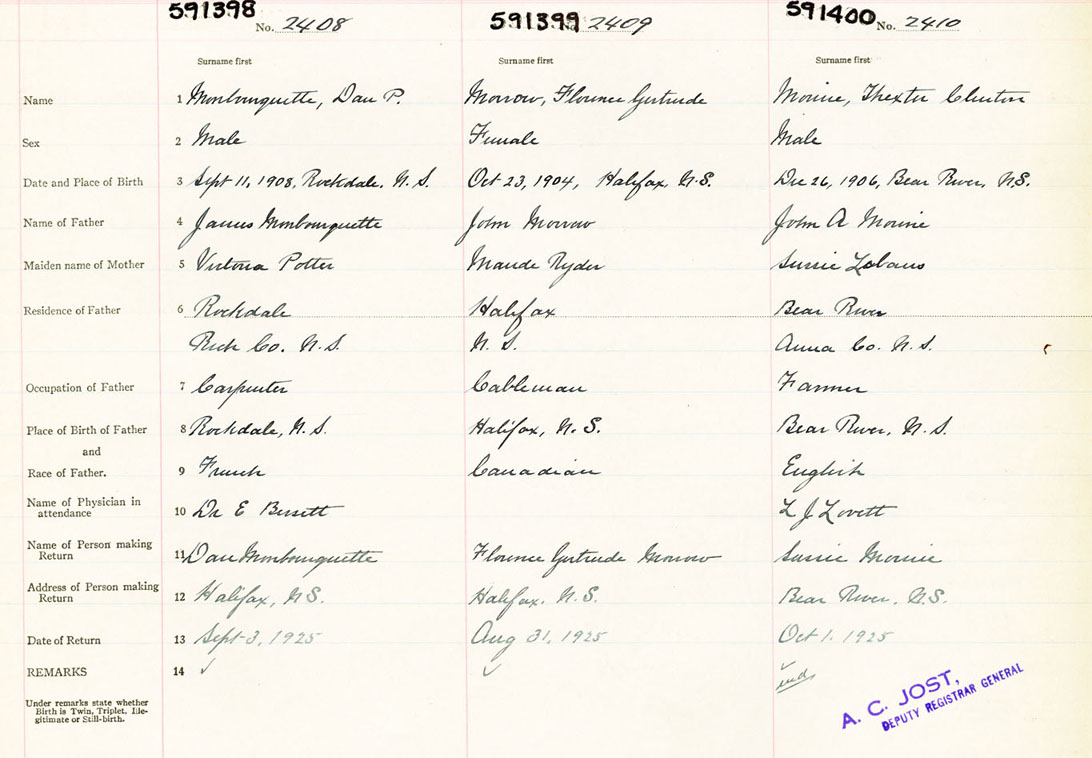 591398 No. 2408 591399 No. 2409 591400 No. 2410
Surname first Surname first Surname first
Name 1 Monbourquette, Dan P. Morrow, Florence Gertrude Morine, Thexter Clinton
Sex 2 Male Female Male
Date and Place of Birth 3 Sept 11, 1908, Rockdale, N. S. Oct 23, 1904, Halifax, N.S. Dec 26, 1906, Bear River, N.S.
Name of Father 4 James Monbourquette John Morrow John A Morine
Maiden name of Mother 5 Victoria Potter Maude Ryder Sussie
Residence of Father 6 Rockdale Halifax Bear River
Rich Co. N.S. N. S. Anna Co. N. S.
Occupation of Father 7 Carpenter Cableman Farmer
Place of Birth of Father 8 Rockdale, N. S. Halifax, N. S. Bear River, N. S.
and
Race of Father. 9 French Canadian English
Name of Physician in
attendance 10 Dr E Bissett L J Lovett
Name of Person making
Return 11 Dan Monbourquette Florence Gertrude Morrow Sussie Morine
Address of Person making
Return 12 Halifax, N.S. Halifax, N.S. Bear River, N.S.
Date of Return 13 Sept 3, 1925 Aug 31, 1925 Oct 1. 1925
REMARKS 14 ✓ ✓ ✓
Under remarks state whether
Birth is Twin, Triplet, Ille-
gitimate or Still-birth.
A. C. JOST,
DEPUTY REGISTRAR GENERAL